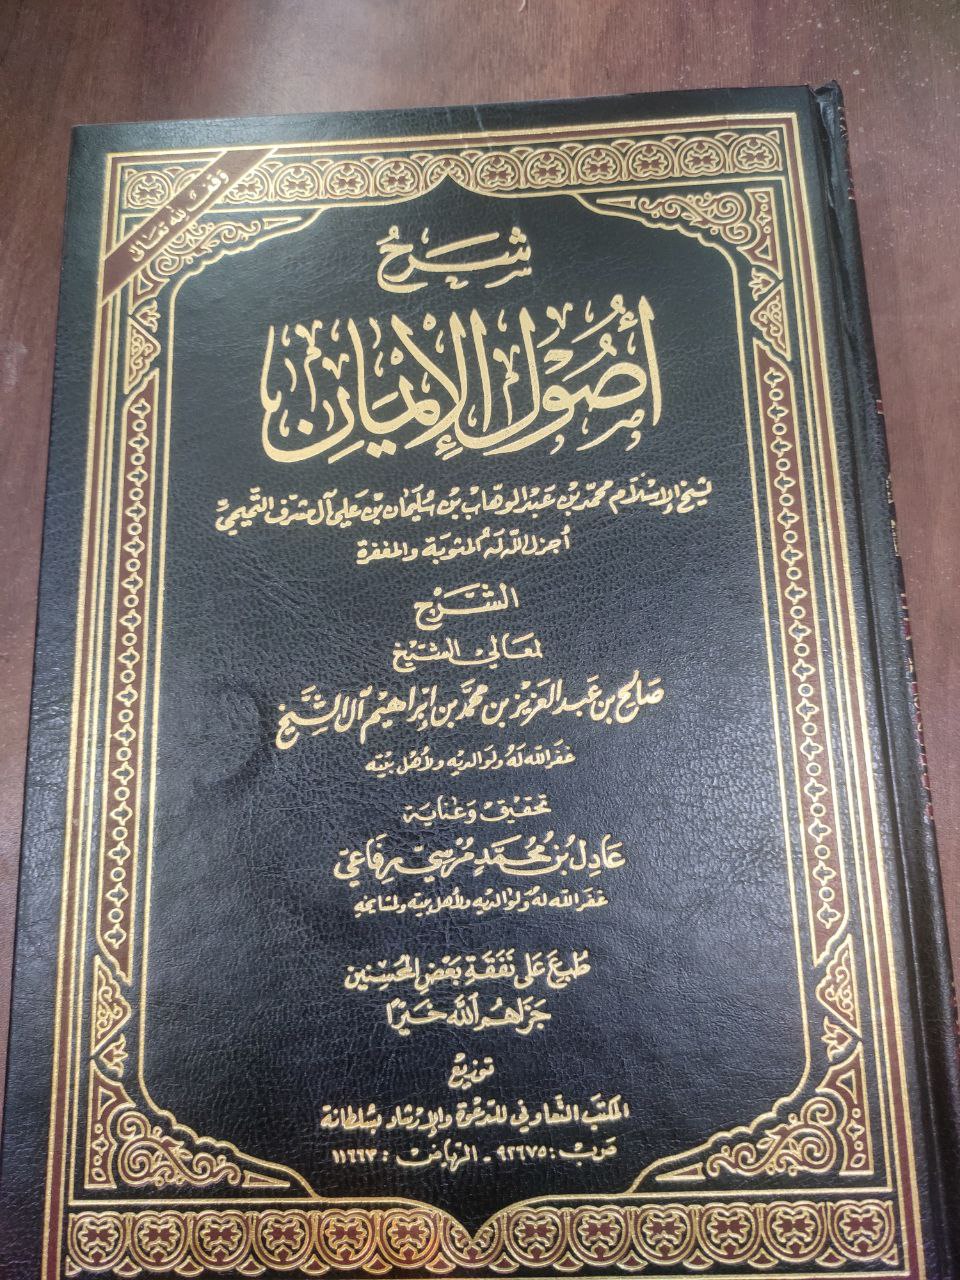 وقف لله تعالى
شرح
أصول الإيمان
لشيخ الإسلام محمد بن عبد الوهاب بن سليمان بن علي آل مشرف التميمي
أجزل الله له المثوبة والمغفرة
الشرح
لمعالي الشيخ
صالح بن عبد العزيز بن محمد بن إبراهيم آل الشيخ
غفر الله له ولوالديه ولأهل بيته
تحقيق وعناية
عادل بن محمد مرسي رفاعي
غفر الله له ولوالديه ولأهل بيته ولمشايخه
طبع على نفقة بعض المحسنين
جزاهم الله خيرا
توزيع
المكتب التعاوني للدعوة والإرشاد بسلطانة
ص.ب: ٩٢٦٧٥ - الرياض: ١١٦٦٣